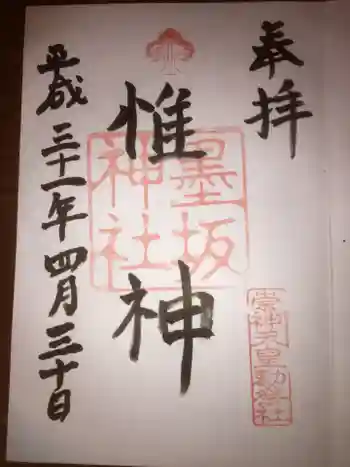 奉拝
惟神
墨坂
神社
崇神天皇勅祭社
平成三十一年四月三十日